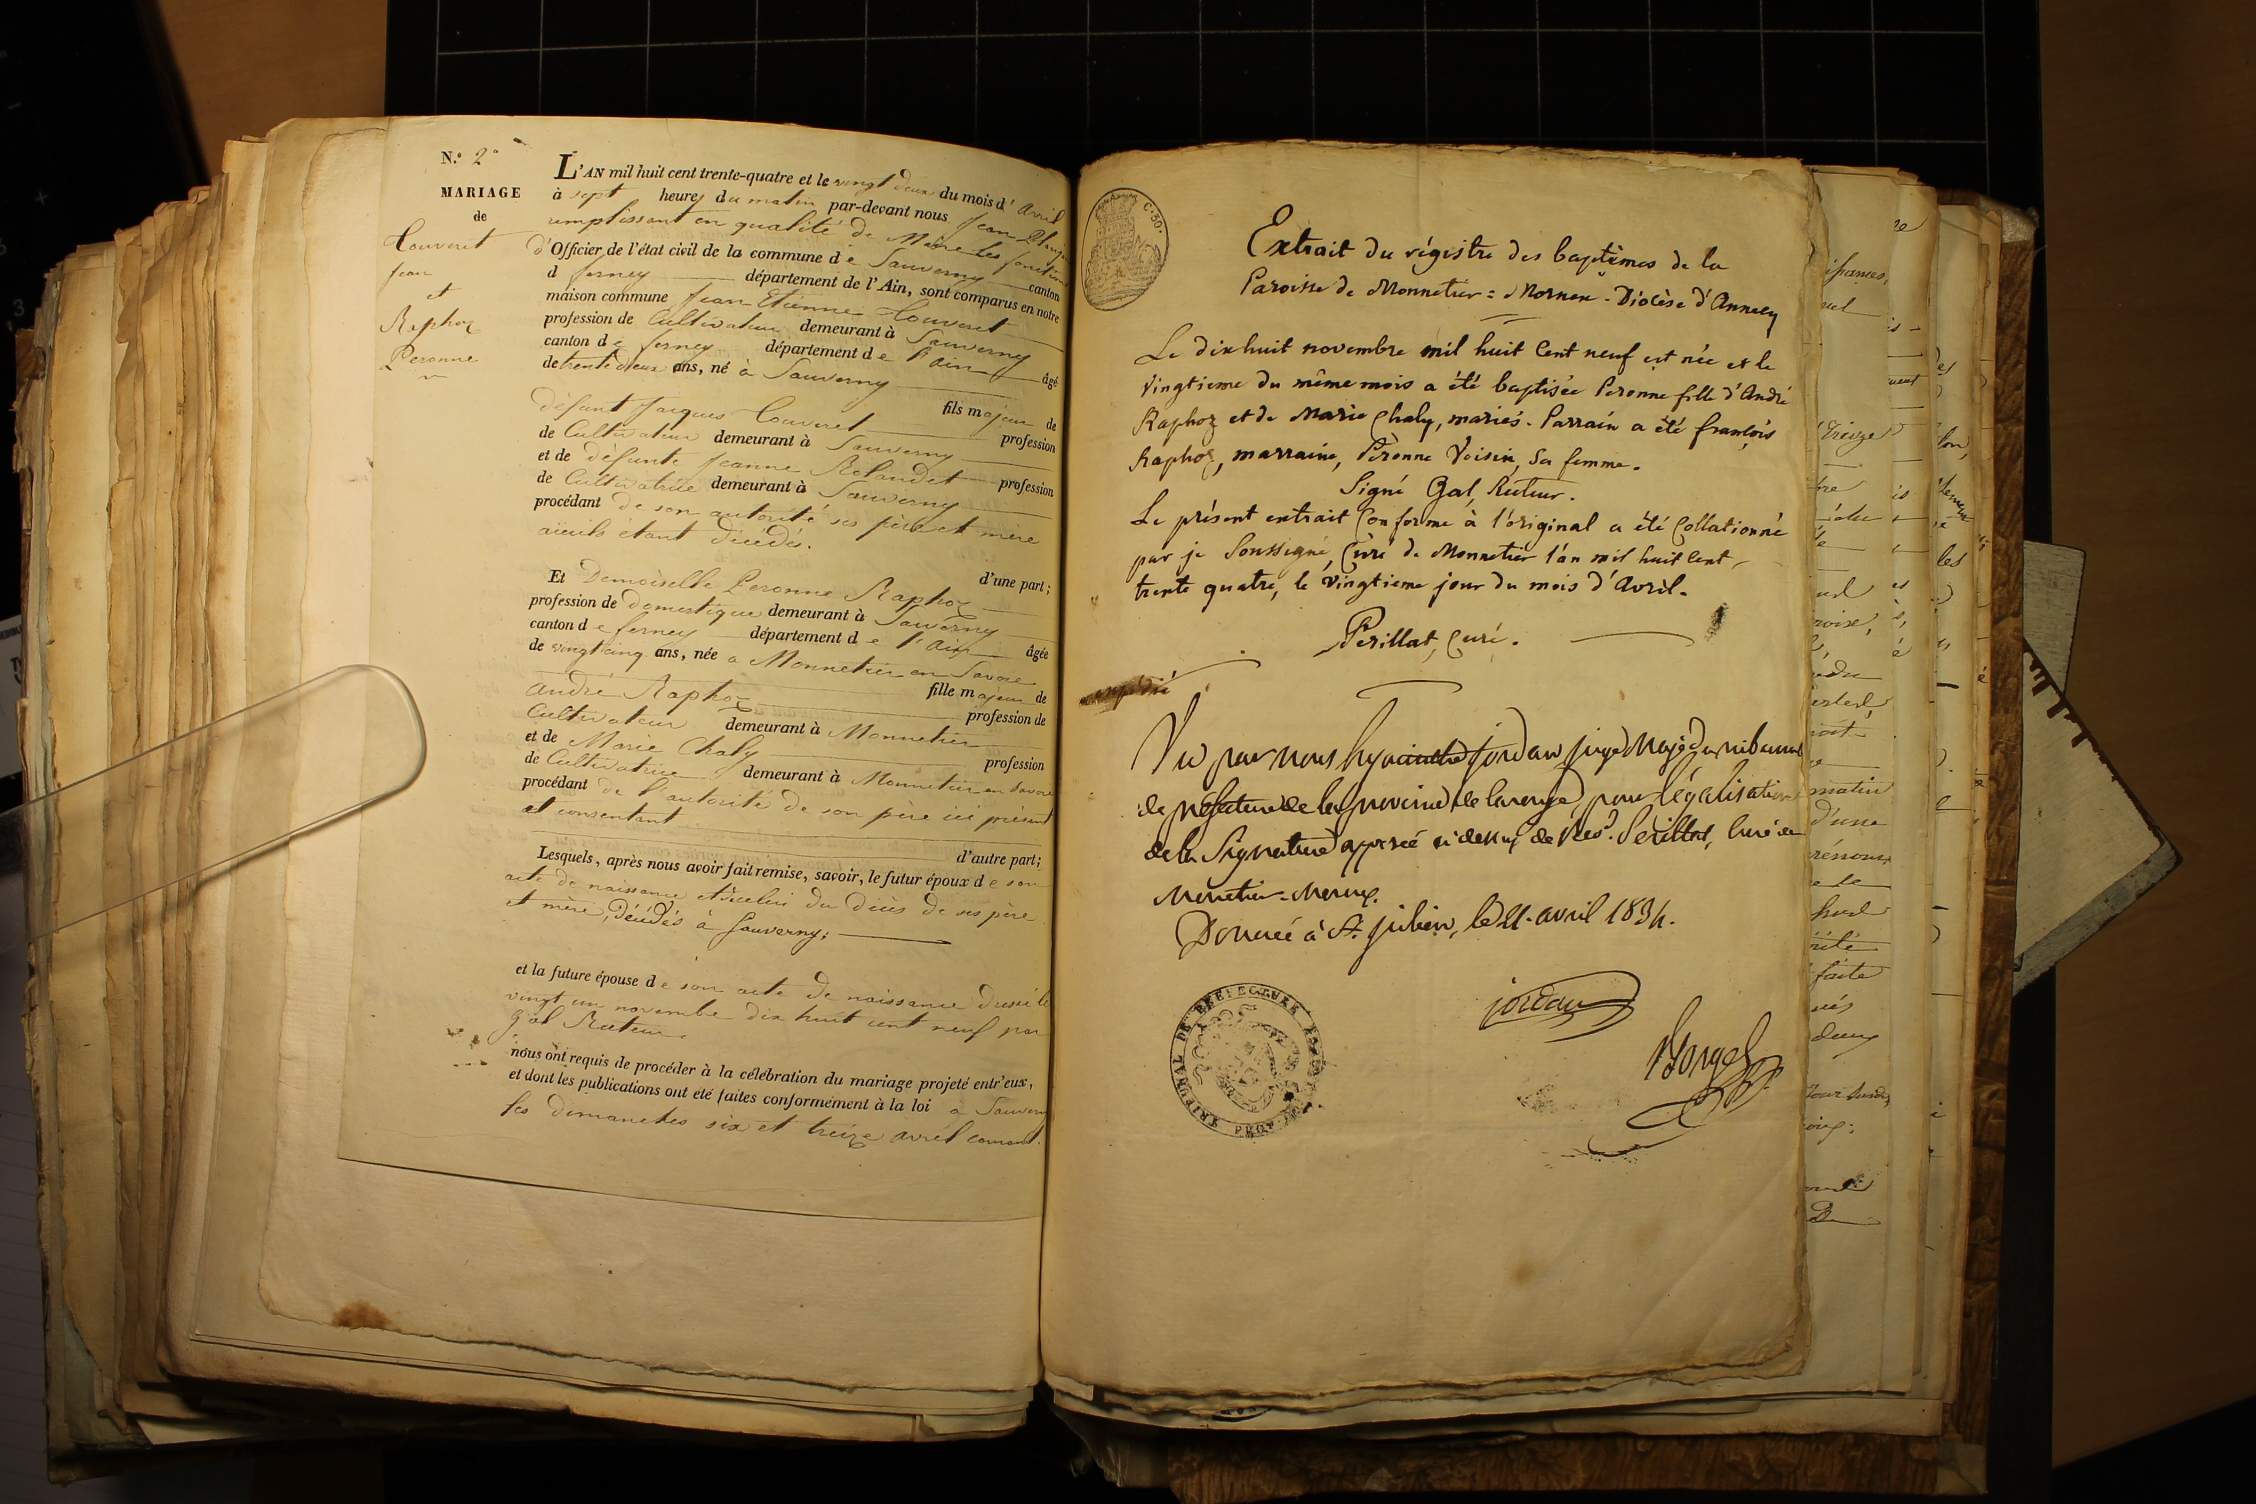 N.º 2º
MARIAGE
de
Couveret
Jean
et
Raphoz
Peronne
L'AN mil huit cent trente-quatre et le vingt deux du mois d'avril
à sept heures du matin par-devant nous Jean
remplissant en qualité de Maire les fonctions
d'Officier de l'état civil de la commune de Sauverny canton
d ferney département de l'Ain, sont comparus en notre
maison commune Jean Etienne Couveret
profession de Cultivateur demeurant à Sauverny
canton de ferney département de l'ain âgé
de trente deux ans, né à Sauverny
fils majeur de
défunt Jacques Couveret profession
de Cultivateur demeurant à Sauverny
et de défunte Jeanne Rolandet profession
de Cultivatrice demeurant à Sauverny
procédant de son autorité ses père et mère
aieuils étant décédés.
d'une part;
Et Demoiselle Peronne Raphoz
profession de domestique demeurant à Sauverny
canton de ferney département de l'Ain âgée
de vingt cinq ans, née a Monnetier en Savoie
fille majeur de
André Raphoz profession de
Cultivateur demeurant à Monnetier
et de Marie Chaly profession
de Cultivatrice demeurant à Monnetier en Savoie
procédant de l'autorité de son père ici présent
et consentant
d'autre part;
Lesquels, après nous avoir fait remise, savoir, le futur époux de son
acte de naissance et celui du décès de ses père
et mère, Décédés à Sauverny;
et la future épouse de son acte de naissance dressé le
vingt un novembre dix huit cent neuf par
Gal Recteur
nous ont requis de procéder à la célébration du mariage projeté entr'eux,
et dont les publications ont été faites conformément à la loi a Sauverny
les dimanches six et treize avril courant.
C. 50.
Extrait du régistre des baptêmes de la
Paroisse de Monnetier = Mornex - Diocèse d'Annecy
Le dix huit novembre mil huit Cent neuf est née et le
vingtieme du même mois a été baptisée Peronne fille d'André
Raphoz et de Marie Chaly, mariés. Parrain a été françois
Raphoz, marraine, Pèronne Voisin, sa femme.
Signé Gal, Recteur.
Le présent extrait Conforme à l'original a été Collationné
par je Soussigné, Curé de Monnetier l'an mil huit Cent
trente quatre, le vingtieme jour du mois d'Avril.
Perillat, Curé.
Vu par nous hyacinthe jordan juge Maje du tribunal
de préfecture de la province de Carouge, pour légalisation
de la Signature apposée ci dessus de Res.d Perillat, Curé de
Monetier-Mornex.
Donné à St. Julien, le 21. avril 1834.
jordan
TRIBUNAL DE PREFECTURE